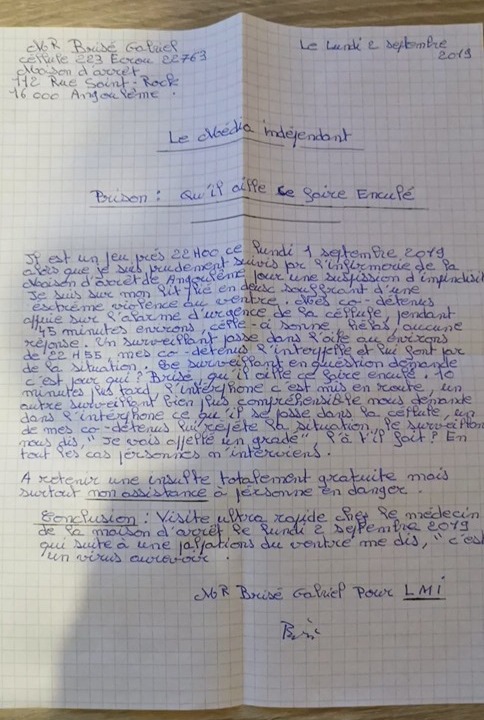 MR Brisé Gabriel
cellule 223 Ecrou 22763
Maison d'arrêt
112 Rue Saint-Rock
16 000 Angoulême.
Le Lundi 2 septembre
2019
Le Média indépendant
Prison : Qu'il aille se faire Enculé
Il est un peu près 22H00 ce lundi 1 septembre 2019
alors que je suis prudement suivis par l'infirmerie de la
Maison d'arrêt de Angoulême pour une suspission d'
Je suis sur mon lit plié en deux souffrant d'une
extrême violence au ventre. Mes co-détenus
appuie sur l'alarme d'urgence de la cellule, pendant
45 minutes environs, celle-ci sonne, hélas, aucune
réponse. Un surveillant passe dans l'aile au environs
de 22H55, mes co-détenus l'interpelle et lui font par
de la situation. Ce surveillant en question demande
c'est pour qui ? Brisé, qu'il aille faire enculé. 
minutes plus tard l'interphone c'est mis en route, un
autre surveillant bien plus compréhensible nous demande
dans l'interphone ce qu'il se passe dans la cellule, un
de mes co-détenus lui répète la situation, le surveillant
nous dis, "Je vais appellé un gradé", l'a t'il fait ? En
tout les cas personnes n'interviens.
A retenir une insulte totalement gratuite mais
surtout non assistance à personne en danger.
Conclusion : Visite ultra rapide chez le médecin
de la maison d'arrêt le lundi 2 septembre 2019
qui suite à une palpations du ventre me dis, "c'est
un virus aurevoir".
MR Brisé Gabriel Pour LMI